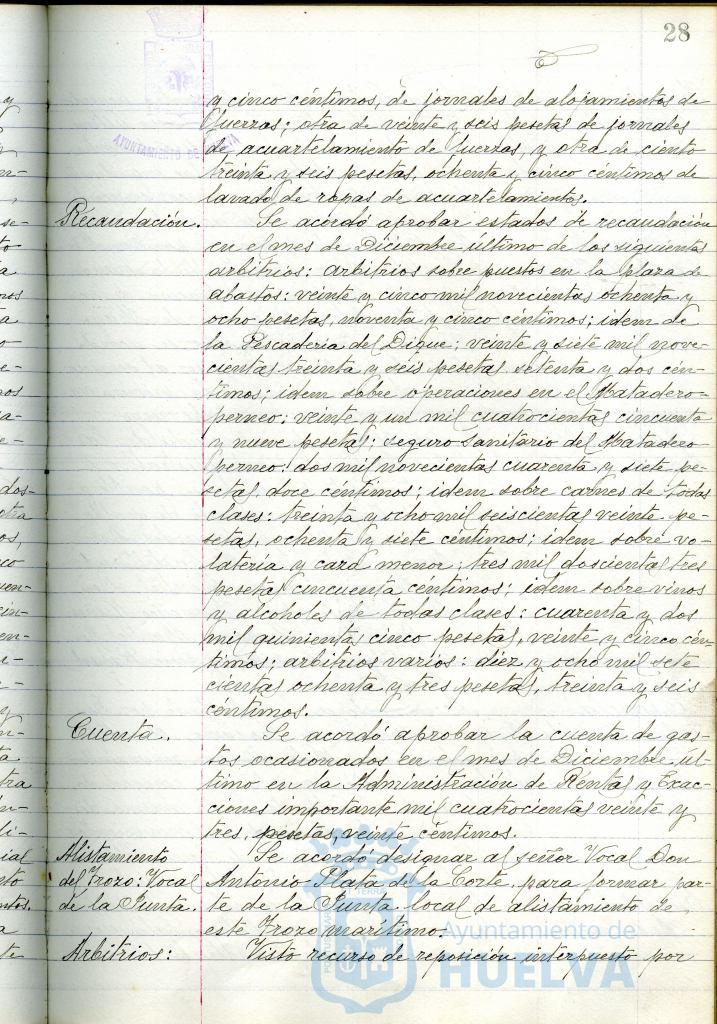 28
y cinco céntimos, de jornales de alojamientos de
fuerzas; otra de veinte y seis pesetas de jornales
de acuartelamiento de fuerzas, y otra de ciento
treinta y seis pesetas, ochenta y cinco céntimos de
lavado de ropas de acuartelamientos.
Recaudación. Se acordó aprobar estados de recaudación
en el mes de Diciembre último de los siguientes
arbitrios: arbitrios sobre puestos en la plaza de
abastos: veinte y cinco mil novecientas ochenta y
ocho pesetas, noventa y cinco céntimos; idem de
la Pescaderia del Dique: veinte y siete mil nove-
cientas treinta y seis pesetas setenta y dos cén-
timos; idem sobre operaciones en el Matadero-
perneo: veinte y un mil cuatrocientas cincuenta
y nueve pesetas; seguro sanitario del Matadero
perneo: dos mil novecientas cuarenta y siete pe-
setas, doce céntimos; idem sobre carnes de todas
clases: treinta y ocho mil seiscientas veinte pe-
setas, ochenta y siete céntimos; idem sobre vo-
latería y caza menor; tres mil doscientas tres
pesetas cincuenta céntimos; idem sobre vinos
y alcoholes de todas clases: cuarenta y dos
mil quinientas cinco pesetas, veinte y cinco cén-
timos; arbitrios varios: diez y ocho mil sete
cientas ochenta y tres pesetas, treinta y seis
céntimos.
Cuenta. Se acordó aprobar la cuenta de gas-
tos ocasionados en el mes de Diciembre úl-
timo en la Administración de Rentas y Exac-
ciones importante mil cuatrocientas veinte y
tres, pesetas, veinte céntimos.
Alistamiento Se acordó designar al señor Vocal Don
del Trozo: Vocal Antonio Plata de la Corte, para formar par-
de la Junta. te de la Junta local de alistamiento de
este Trozo marítimo.
Arbitrios: Visto recurso de reposición interpuesto por
AYUNTAMIENTO DE
Ayuntamiento de
HUELVA